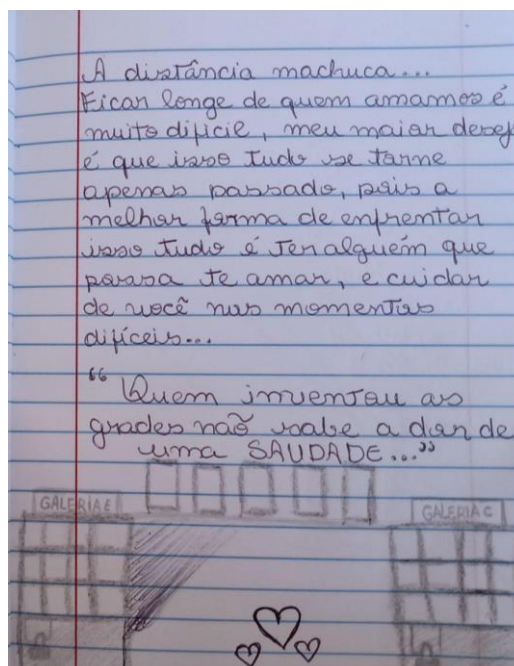 A distância machuca...
Ficar longe de quem amamos é
muito difície, meu maior desej
é que isso tudo se torne
apenas passado, pois a
melhor forma de enfrentar
isso tudo é ter alguém que
possa te amar, e cuidar
de você nos momentos
difíceis...
“Quem inventou as
grades não sabe a dor de
uma SAUDADE...”
GALERIA E
GALERIA C